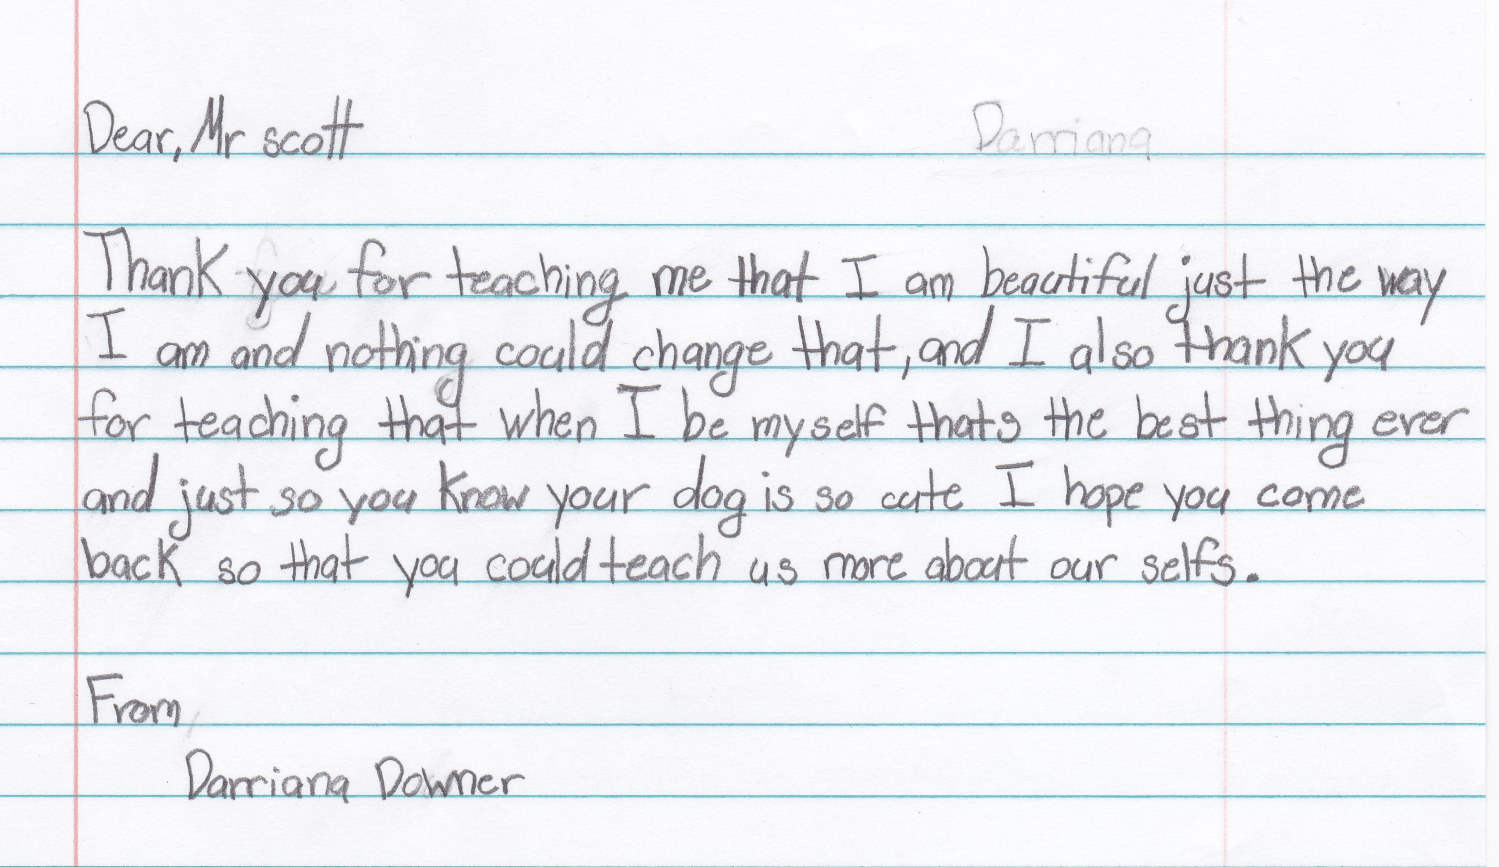 Dear, Mr scott
Darriana
Thank you for teaching me that I am beautiful just the way
I am and nothing could change that, and I also thank you
for teaching that when I be myself thats the best thing ever
and just so you know your dog is so cute I hope you come
back so that you could teach us more about our selfs.
From,
Darriana Downer